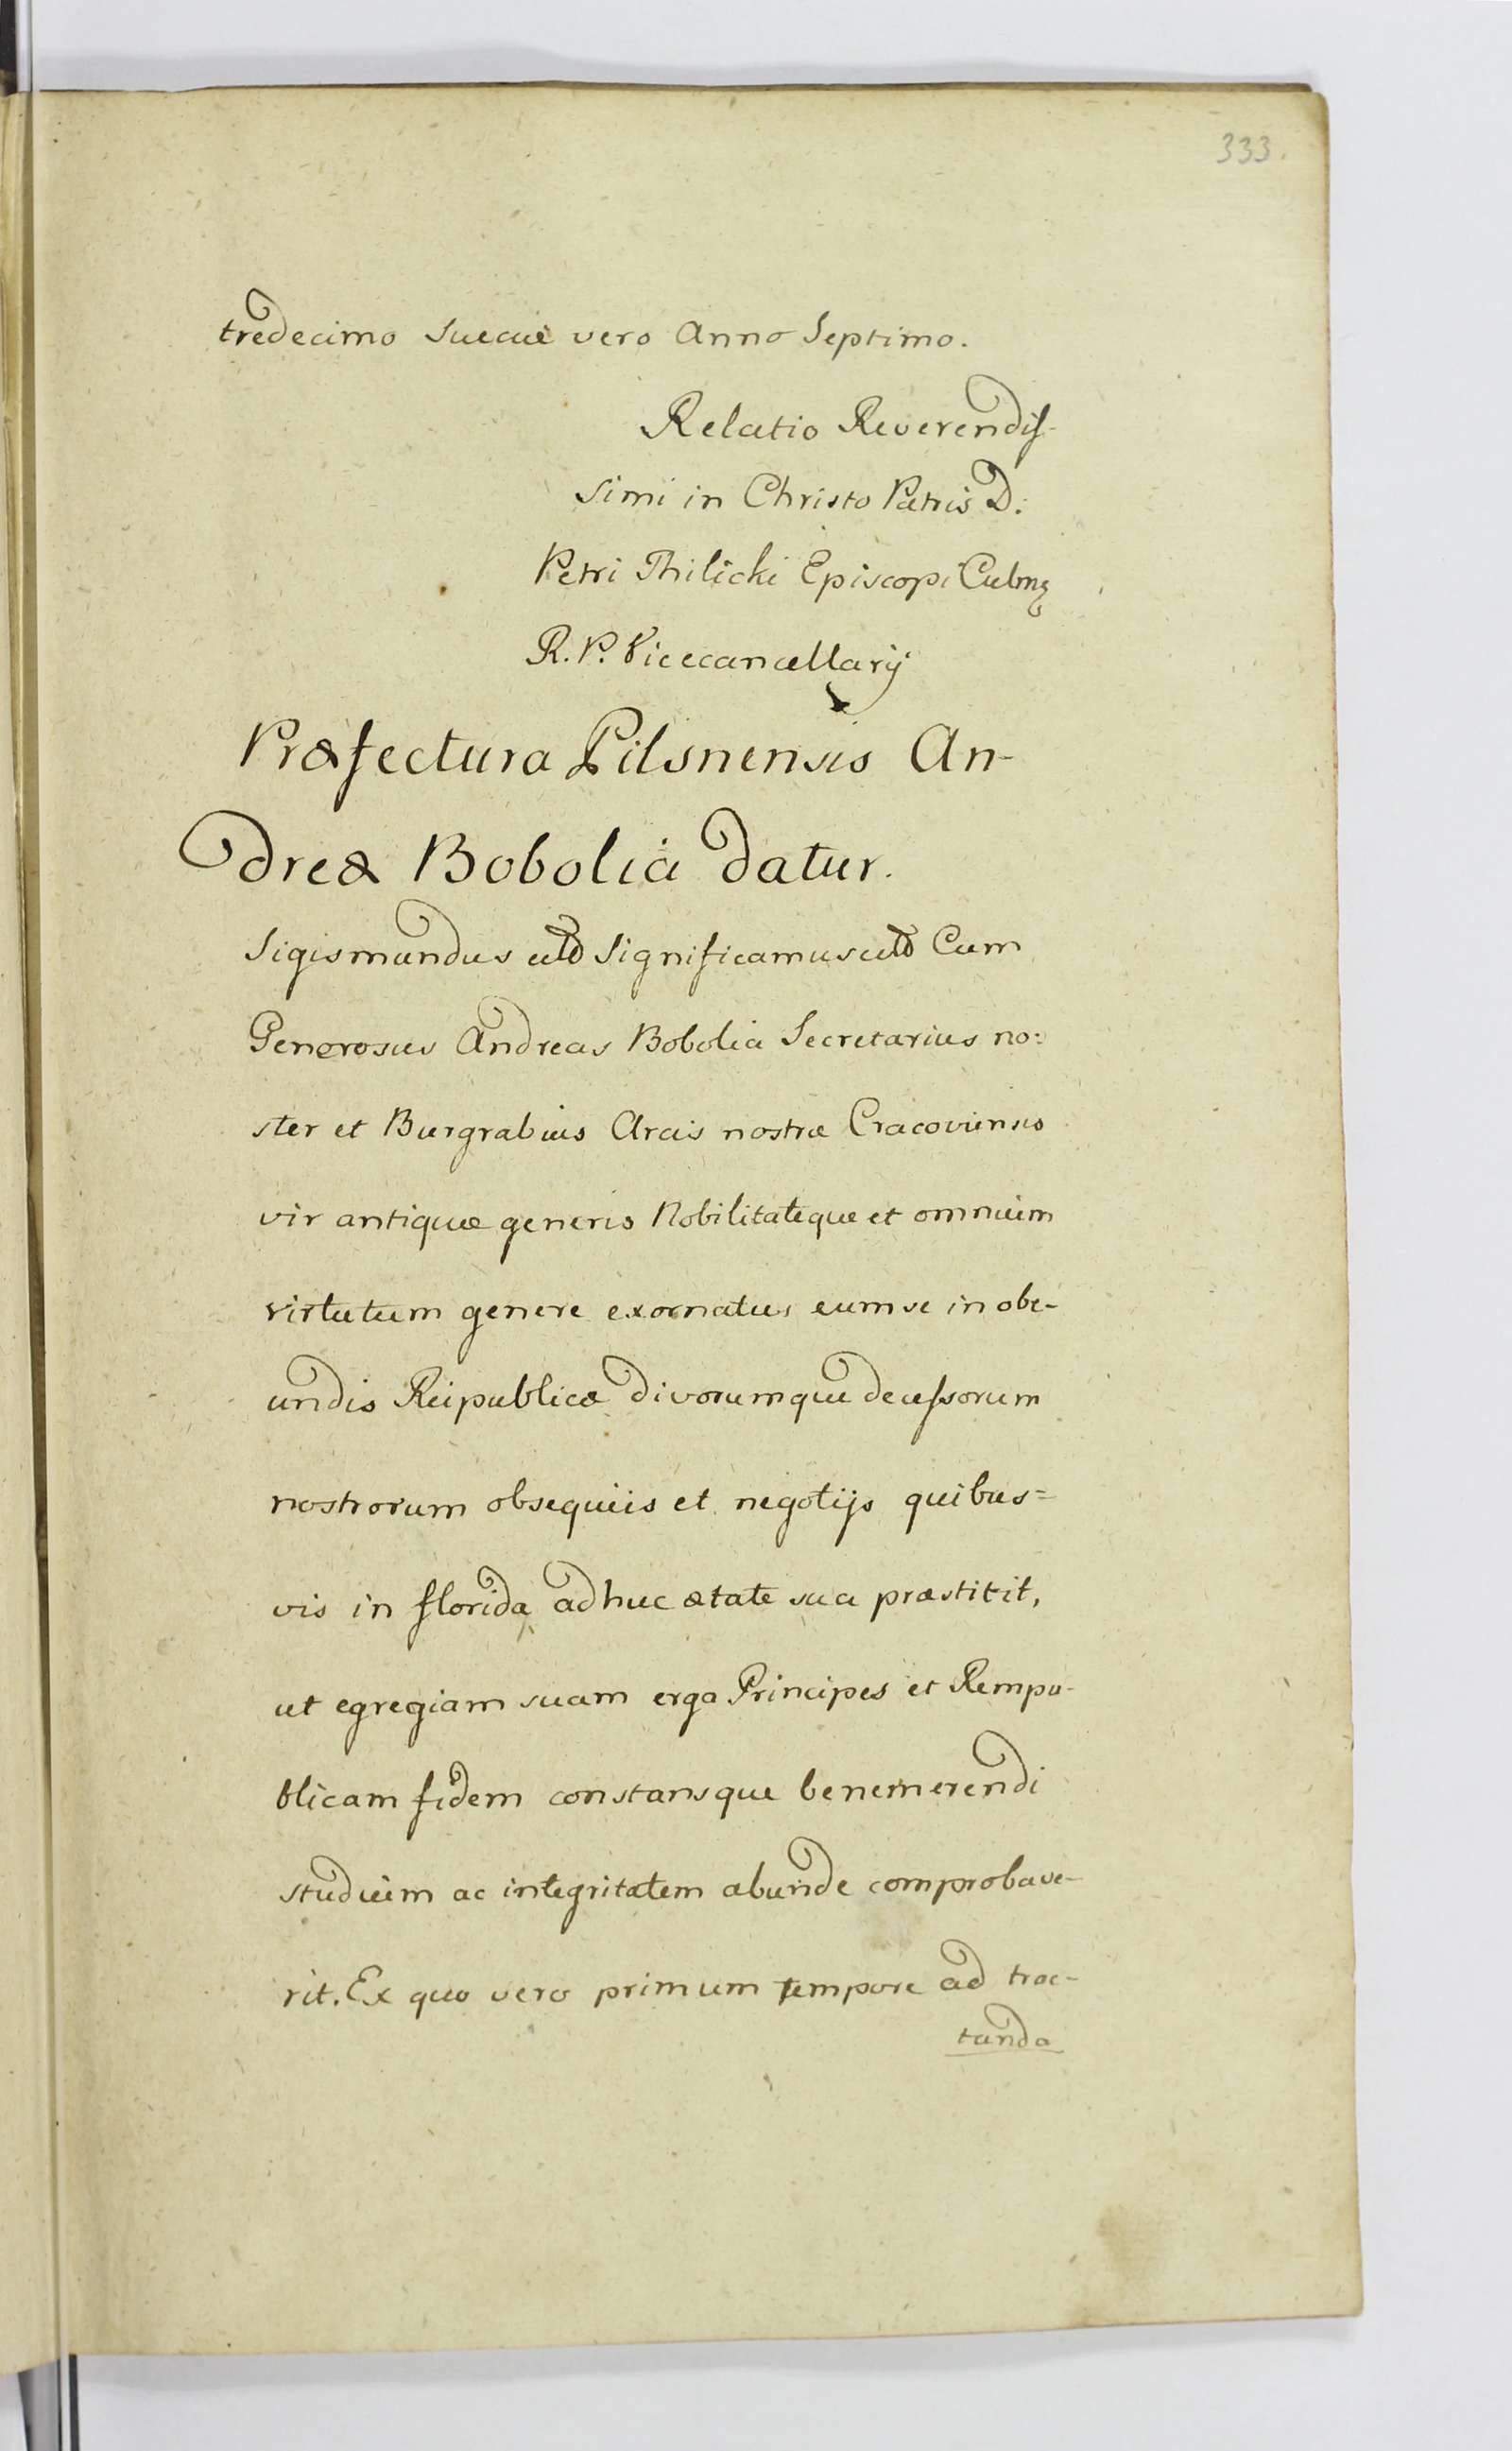 333.
tredecimo Sueciæ vero Anno Septimo.
Relatio Reverendis-
simi in Christo Patris D:
Petri Thilicki Episcopi Culmę
R. P. Vicecancellarij
Præfectura Pilsnensis An-
dreæ Bobolia datur.
Sigismundus Significamus Cum
Generosus Andreas Bobolia Secretarius no:
ster et Burgrabius Arcis nostræ Cracoviensis
vir antiquæ generis Nobilitateque et omnium
virtutum genere exornatus eum se in obe-
undis Reipublicæ divorumque decessorum
nostrorum obsequiis et negotijs quibus=
vis in florida adhuc ætate sua præstitit,
ut egregiam suam erga Principes et Rempu-
blicam fidem constansque benemerendi
studium ac integritatem abunde comprobave-
rit. Ex quo vero primum tempore ad trac-
tanda